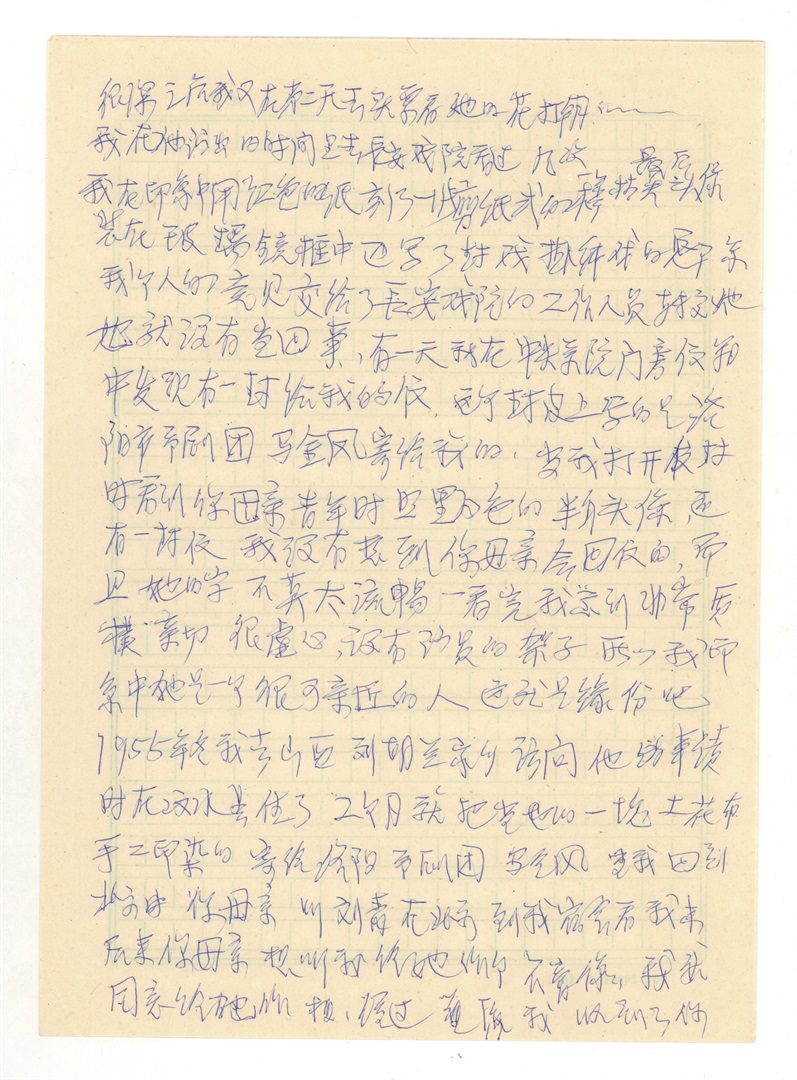 很深之后我又在第二天去买票看她的花打朝……
我在她演出的时间里去长安戏院看过几次 最后
我在印象中用红色的纸刻了一张剪纸式的穆桂英头像
装在玻璃镜框中还写了封我对
我个人的意见交给了长安戏院的工作人员转交她
也就没有当回事,有一天我在中央美院门旁信箱
中发现有一封给我的信,信封皮上写的是洛
阳市市剧团马金凤寄给我的,当我打开
时看到你母亲青年时且黑白色的半身头像,还
有一封信 我没有想到你母亲会回信的,而
且她的字不算太流畅 一看完我感到非常质
朴亲切 很虚心,没有演员的架子 所以我印
象中她是一个很可亲近的人 这就是缘份吧
1955年冬我去山西刘胡兰家乡访问他的事绩
时在文水县住了2个月就把当地的一块土花布
手工印染的寄给洛阳市剧团马金凤 当我回到
北京时 你母亲叫刘青在北京到我宿舍看我来
后来你母亲想叫我给她作个 像,我就
同意给她 ,经过 我收到了你